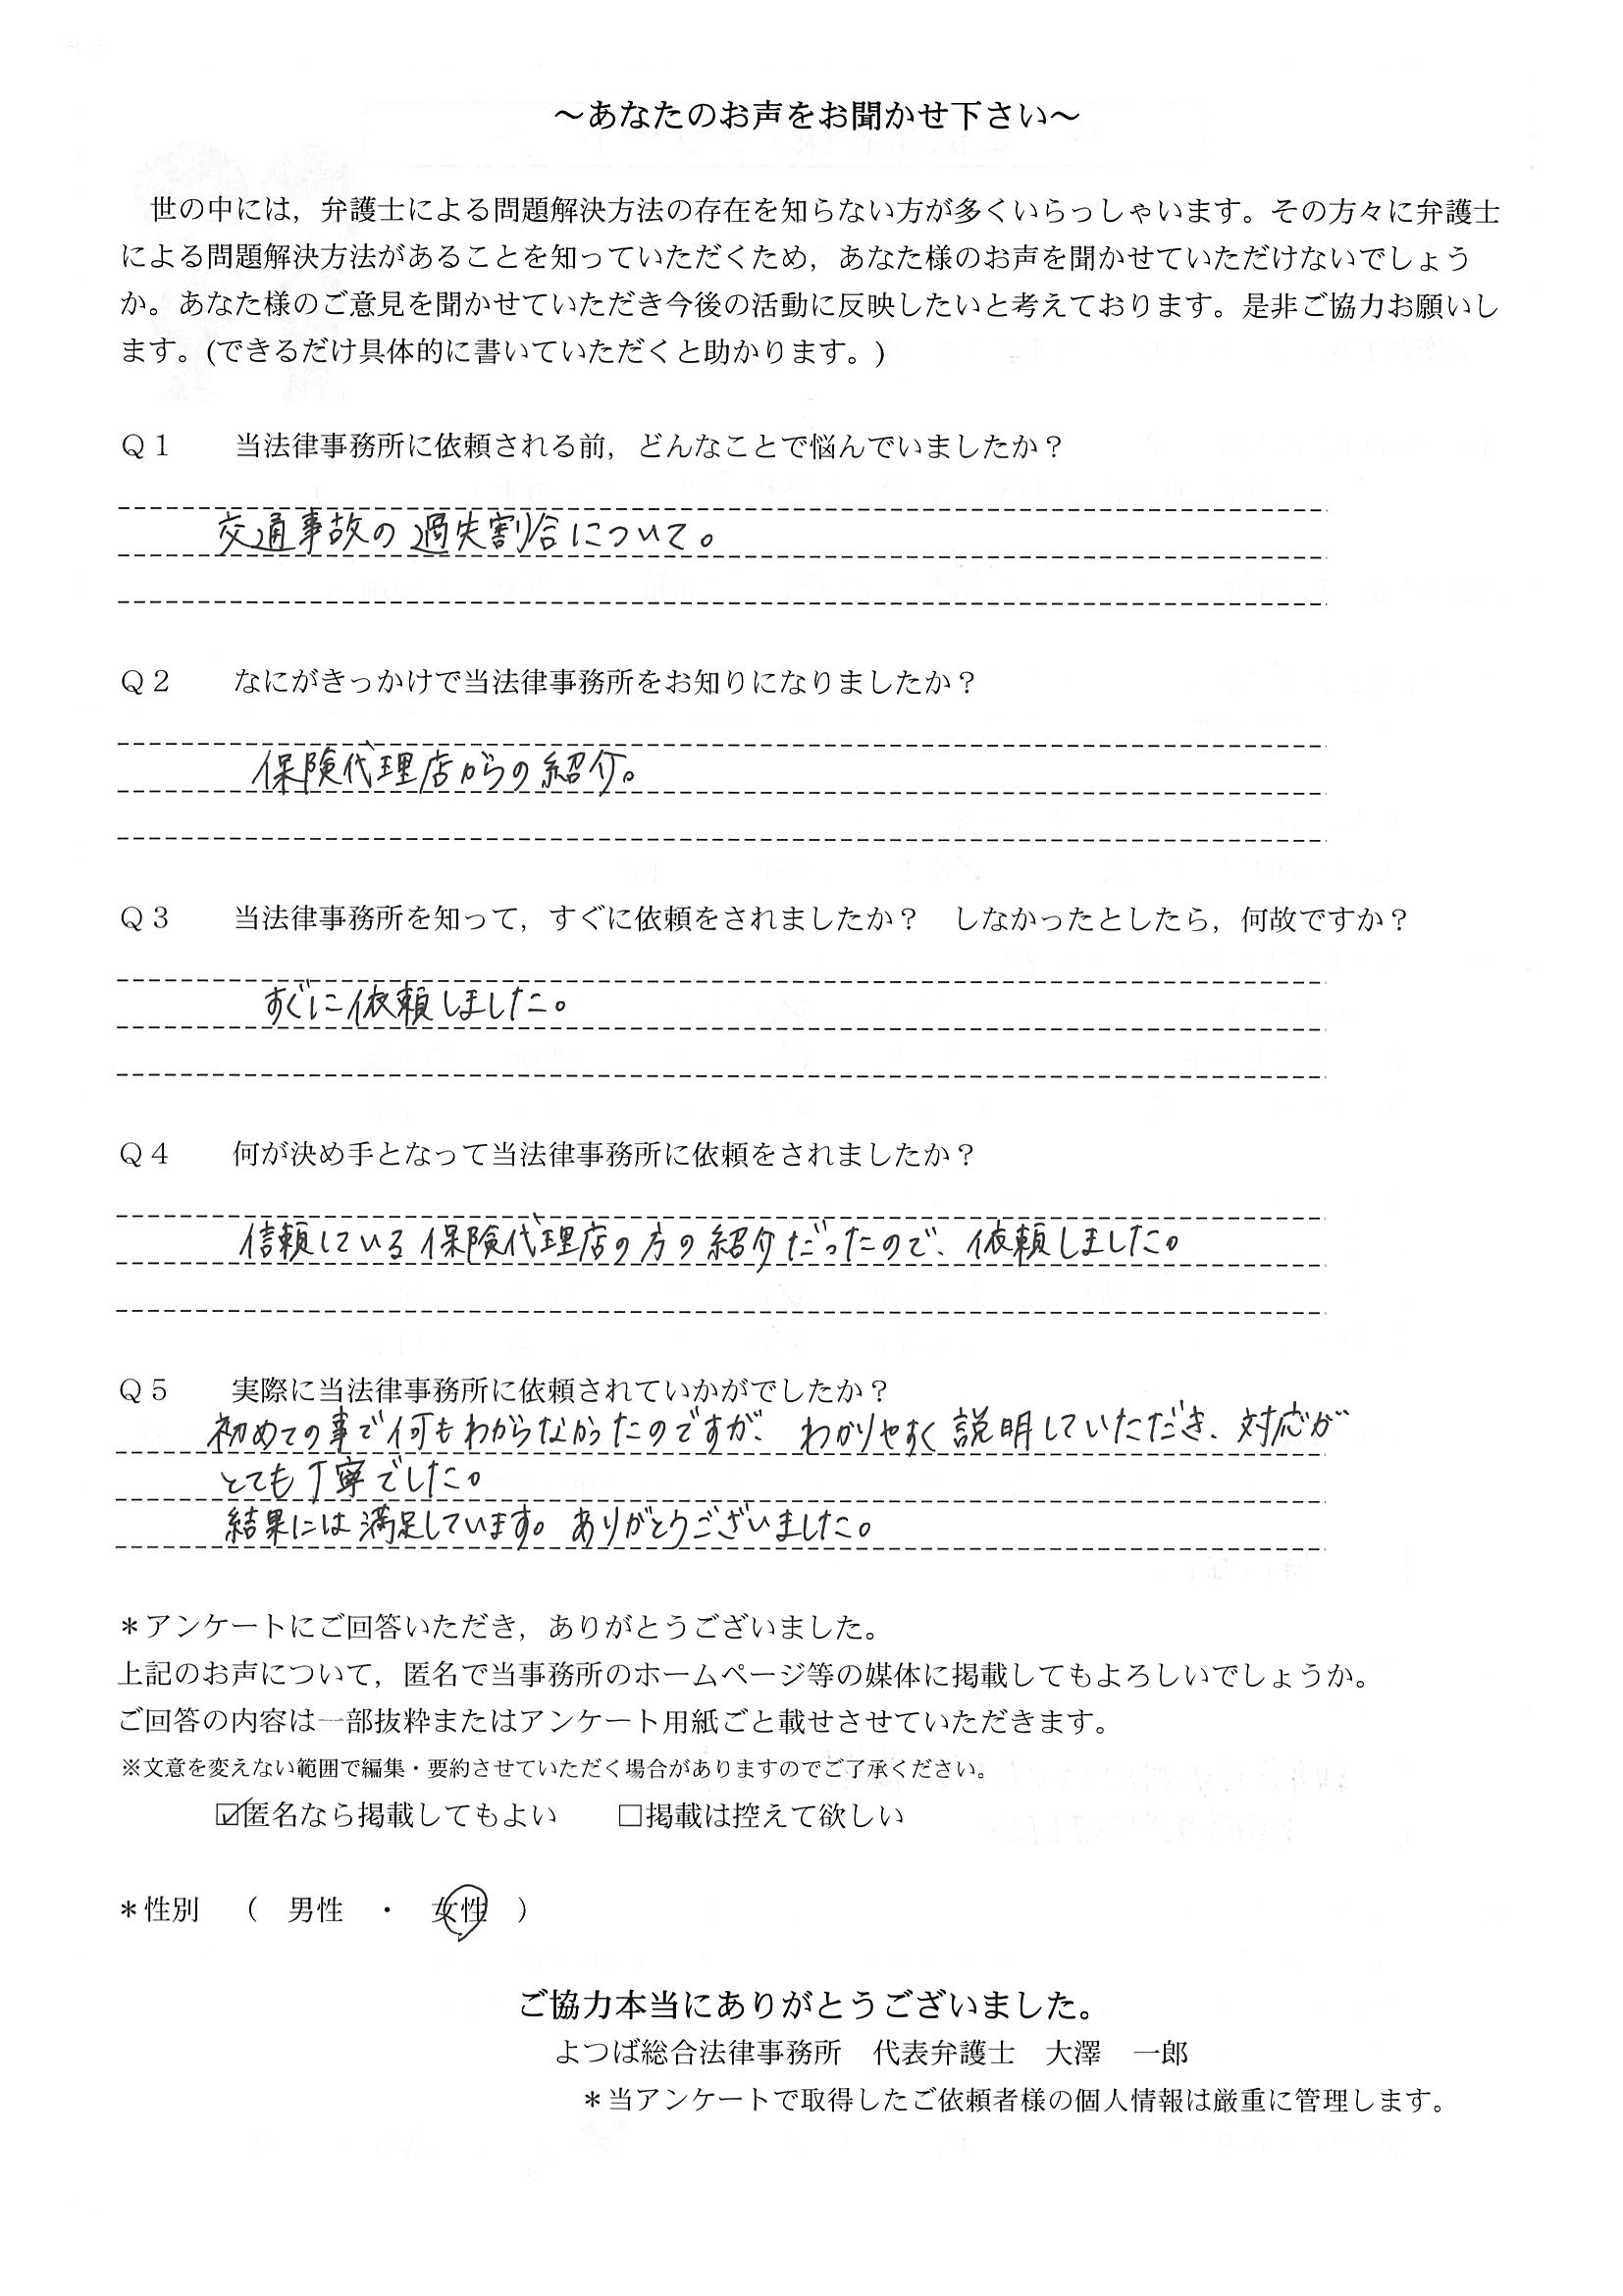 ～あなたのお声をお聞かせ下さい～
世の中には，弁護士による問題解決方法の存在を知らない方が多くいらっしゃいます。その方々に弁護士
による問題解決方法があることを知っていただくため，あなた様のお声を聞かせていただけないでしょう
か。あなた様のご意見を聞かせていただき今後の活動に反映したいと考えております。是非ご協力お願いし
ます。(できるだけ具体的に書いていただくと助かります。)
Ｑ１　　当法律事務所に依頼される前，どんなことで悩んでいましたか？
交通事故の過失割合について。
Ｑ２　　なにがきっかけで当法律事務所をお知りになりましたか？
保険代理店からの紹介。
Ｑ３　　当法律事務所を知って，すぐに依頼をされましたか？　しなかったとしたら，何故ですか？
すぐに依頼しました。
Ｑ４　　何が決め手となって当法律事務所に依頼をされましたか？
信頼している保険代理店の方の紹介だったので、依頼しました。
Ｑ５　　実際に当法律事務所に依頼されていかがでしたか？
初めての事で何もわからなかったのですが、わかりやすく説明していただき、対応が
とても丁寧でした。
結果には満足しています。ありがとうございました。
＊アンケートにご回答いただき，ありがとうございました。
上記のお声について，匿名で当事務所のホームページ等の媒体に掲載してもよろしいでしょうか。
ご回答の内容は一部抜粋またはアンケート用紙ごと載せさせていただきます。
※文意を変えない範囲で編集・要約させていただく場合がありますのでご了承ください。
☑匿名なら掲載してもよい　　□掲載は控えて欲しい
＊性別　（　男性　・　女性　）
ご協力本当にありがとうございました。
よつば総合法律事務所　代表弁護士　大澤　一郎
＊当アンケートで取得したご依頼者様の個人情報は厳重に管理します。